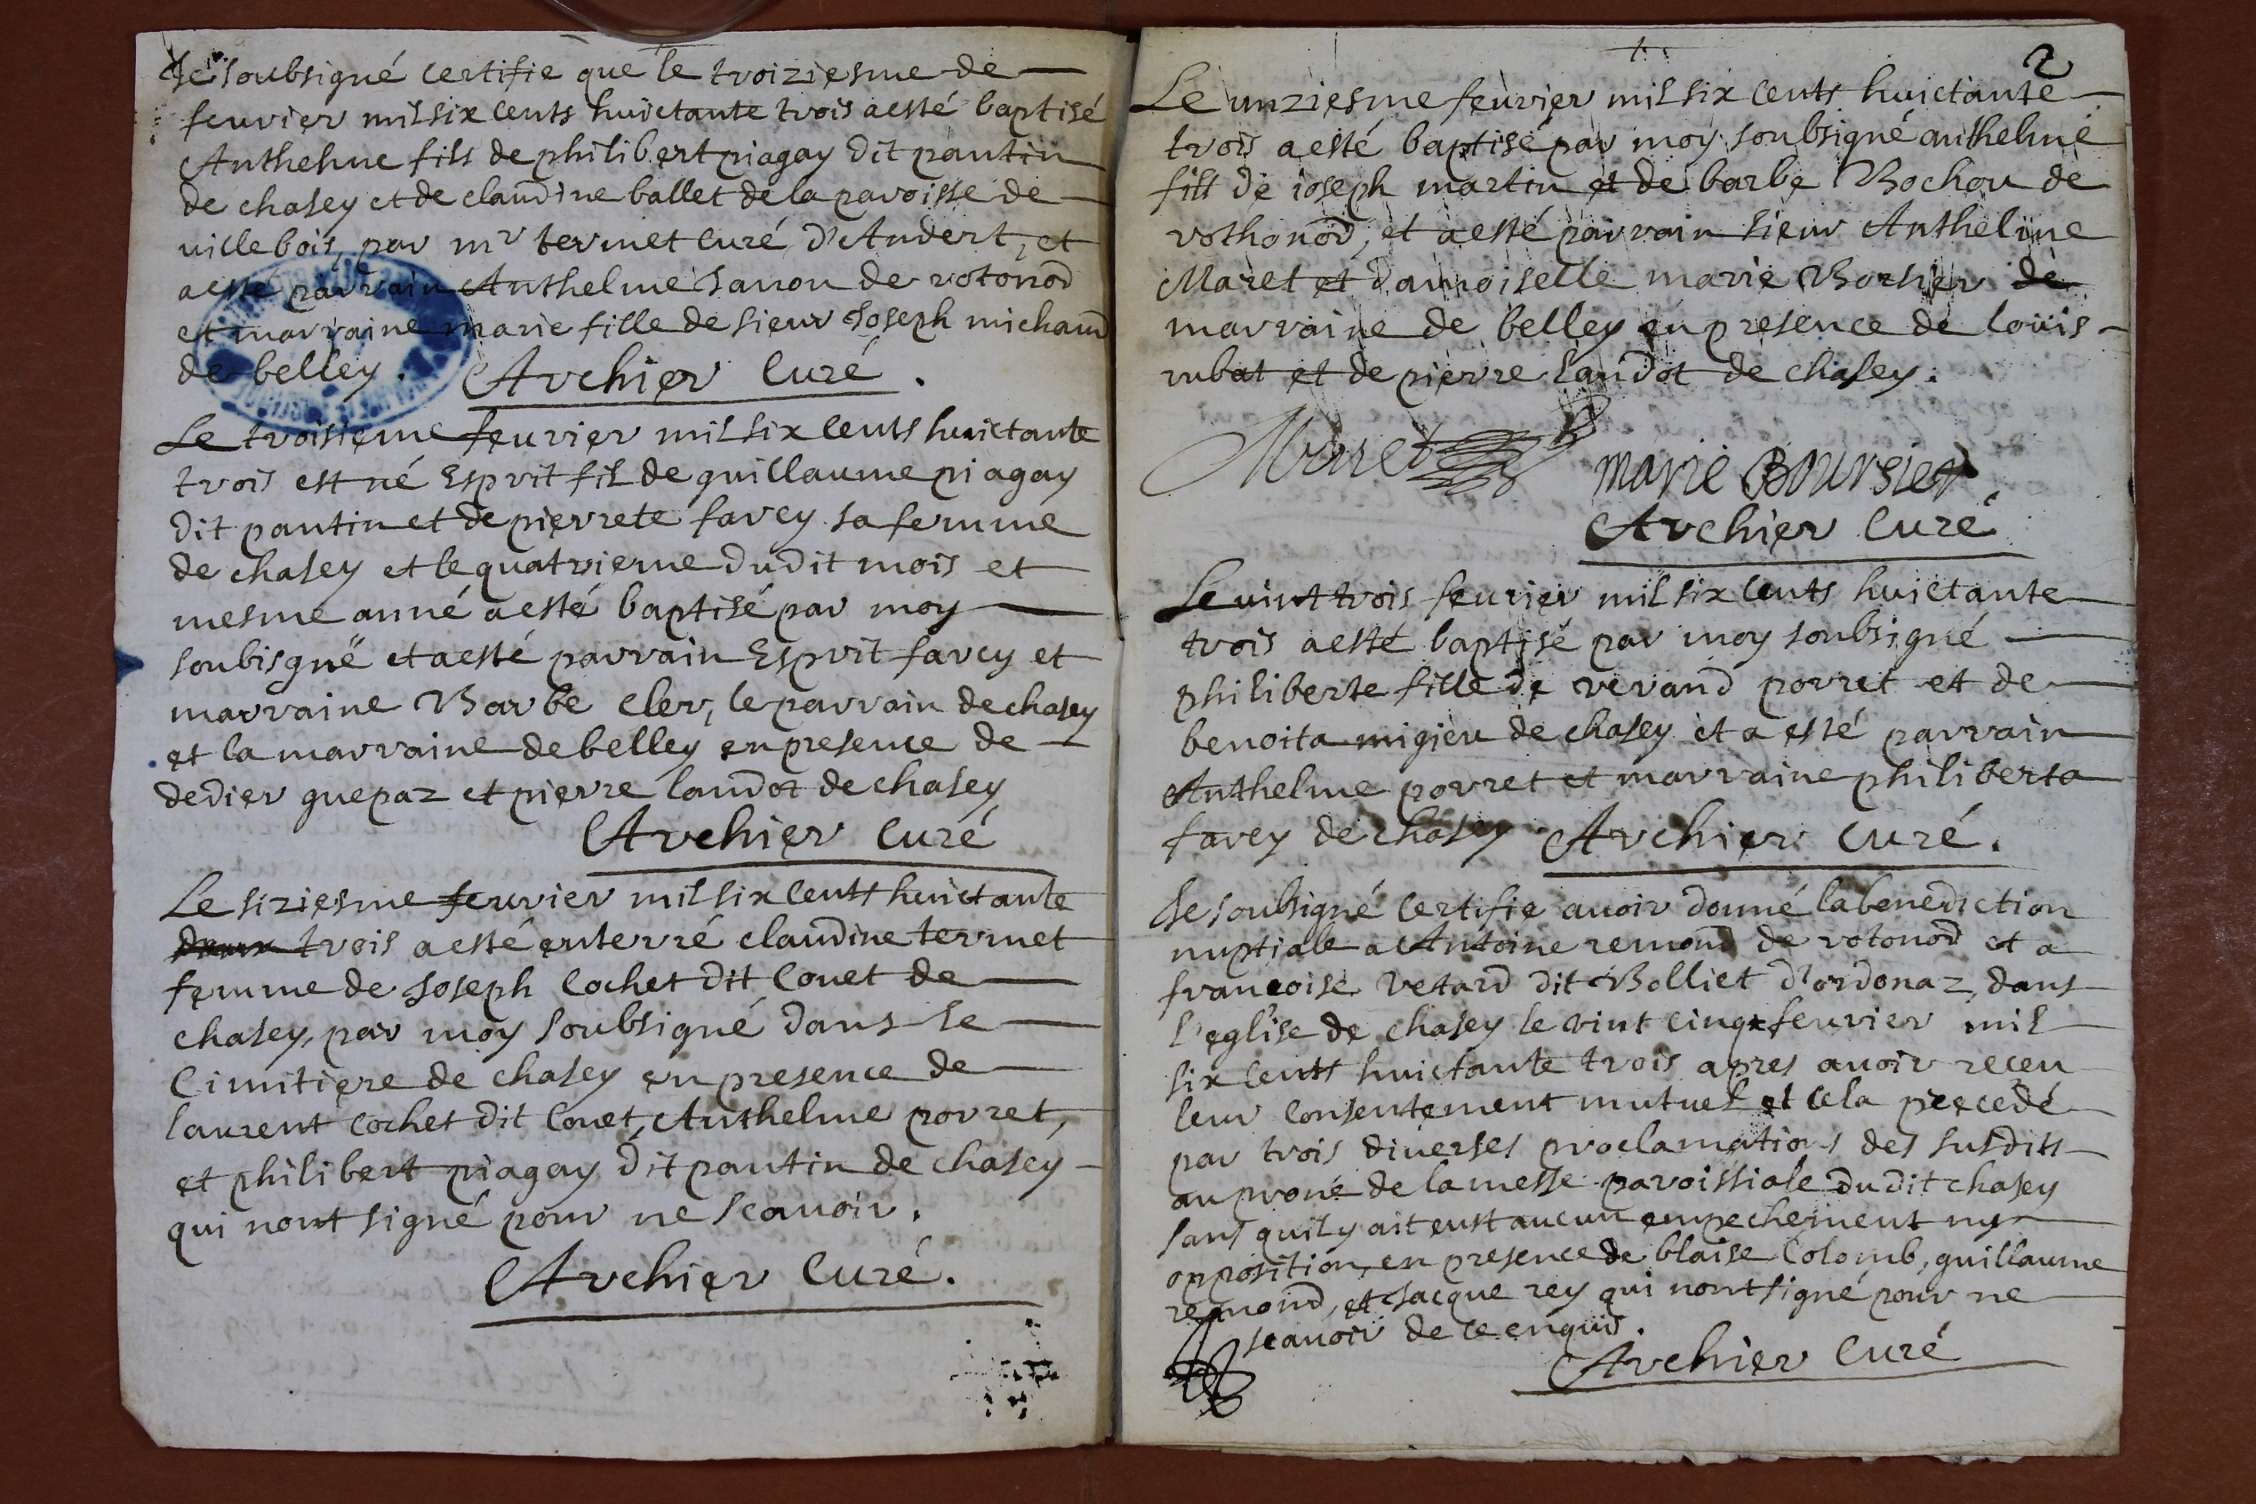 Je soubsigné certifie que le troiziesme de
feuvrier mil six cents huictante trois a esté baptisé
Anthelme fils de philibert piagay dit pantin
de chasey et de claudine ballet de la paroisse de
villebois, par mr termet curé d'Andert, et
a esté parrain Anthelme Janon de rotonod
et marraine marie fille de sieur Joseph michaud
de belley. Archier curé.
Le troisieme feuvrier mil six cents huictante
trois est né Esprit fil de guillaume piagay
dit pantin et de pierrete favey sa femme
de chasey et le quatrieme dudit mois et
mesme anné a esté baptisé par moy
soubisgné et a esté parrain Esprit favey et
marraine Barbe cler, le parrain de chasey
et la marraine de belley en presence de
dedier guepaz et pierre landot de chasey
Archier curé
Le siziesme feuvrier mil six cents huictante
trois a esté enterré claudine termet
femme de Joseph cochet dit couet de
chasey, par moy soubsigné dans le
cimitiere de chasey en presence de
laurent cochet dit couet, Anthelme porret,
et philibert piagay dit pantin de chasey
qui nont signé pour ne scavoir.
Archier curé.
2
Le unziesme feuvrier mil six cents huictante
trois a esté baptisé par moy soubsigné anthelme
fils de ioseph martin et de barbe Bochou de
rothonod, et a esté parrain sieur Anthelme
Maret et damoiselle marie Borsier de
marraine de belley en presence de louis
rubat et de pierre landot de chasey.
Maret
marie Boursier
Archier curé
Le vint trois feuvrier mil six cents huictante
trois a esté baptisé par moy soubsigné
philiberte fille de revand porret et de
benoita migieu de chasey et a esté parrain
Anthelme porret et marraine philiberta
favey de chasey Archier curé.
Je soubsigné certifie avoir donné la benediction
nuptiale a Antoine remond de rotonod et a
francoise vetard dit Bolliet d'ordonaz, dans
l'eglise de chasey le vint cinq feuvrier mil
six cents huictante trois apres avoir receu
leur consentement mutuel et cela precedé
par trois diverses proclamations des susdits
au prone de la messe paroissiale dudit chasey
sans quil y ait eust aucun empechement ny
opposition, en presence de blaise colomb, guillaume
remond, et Jacque rey qui nont signé pour ne
scavoir de ce enquis.
Archier curé